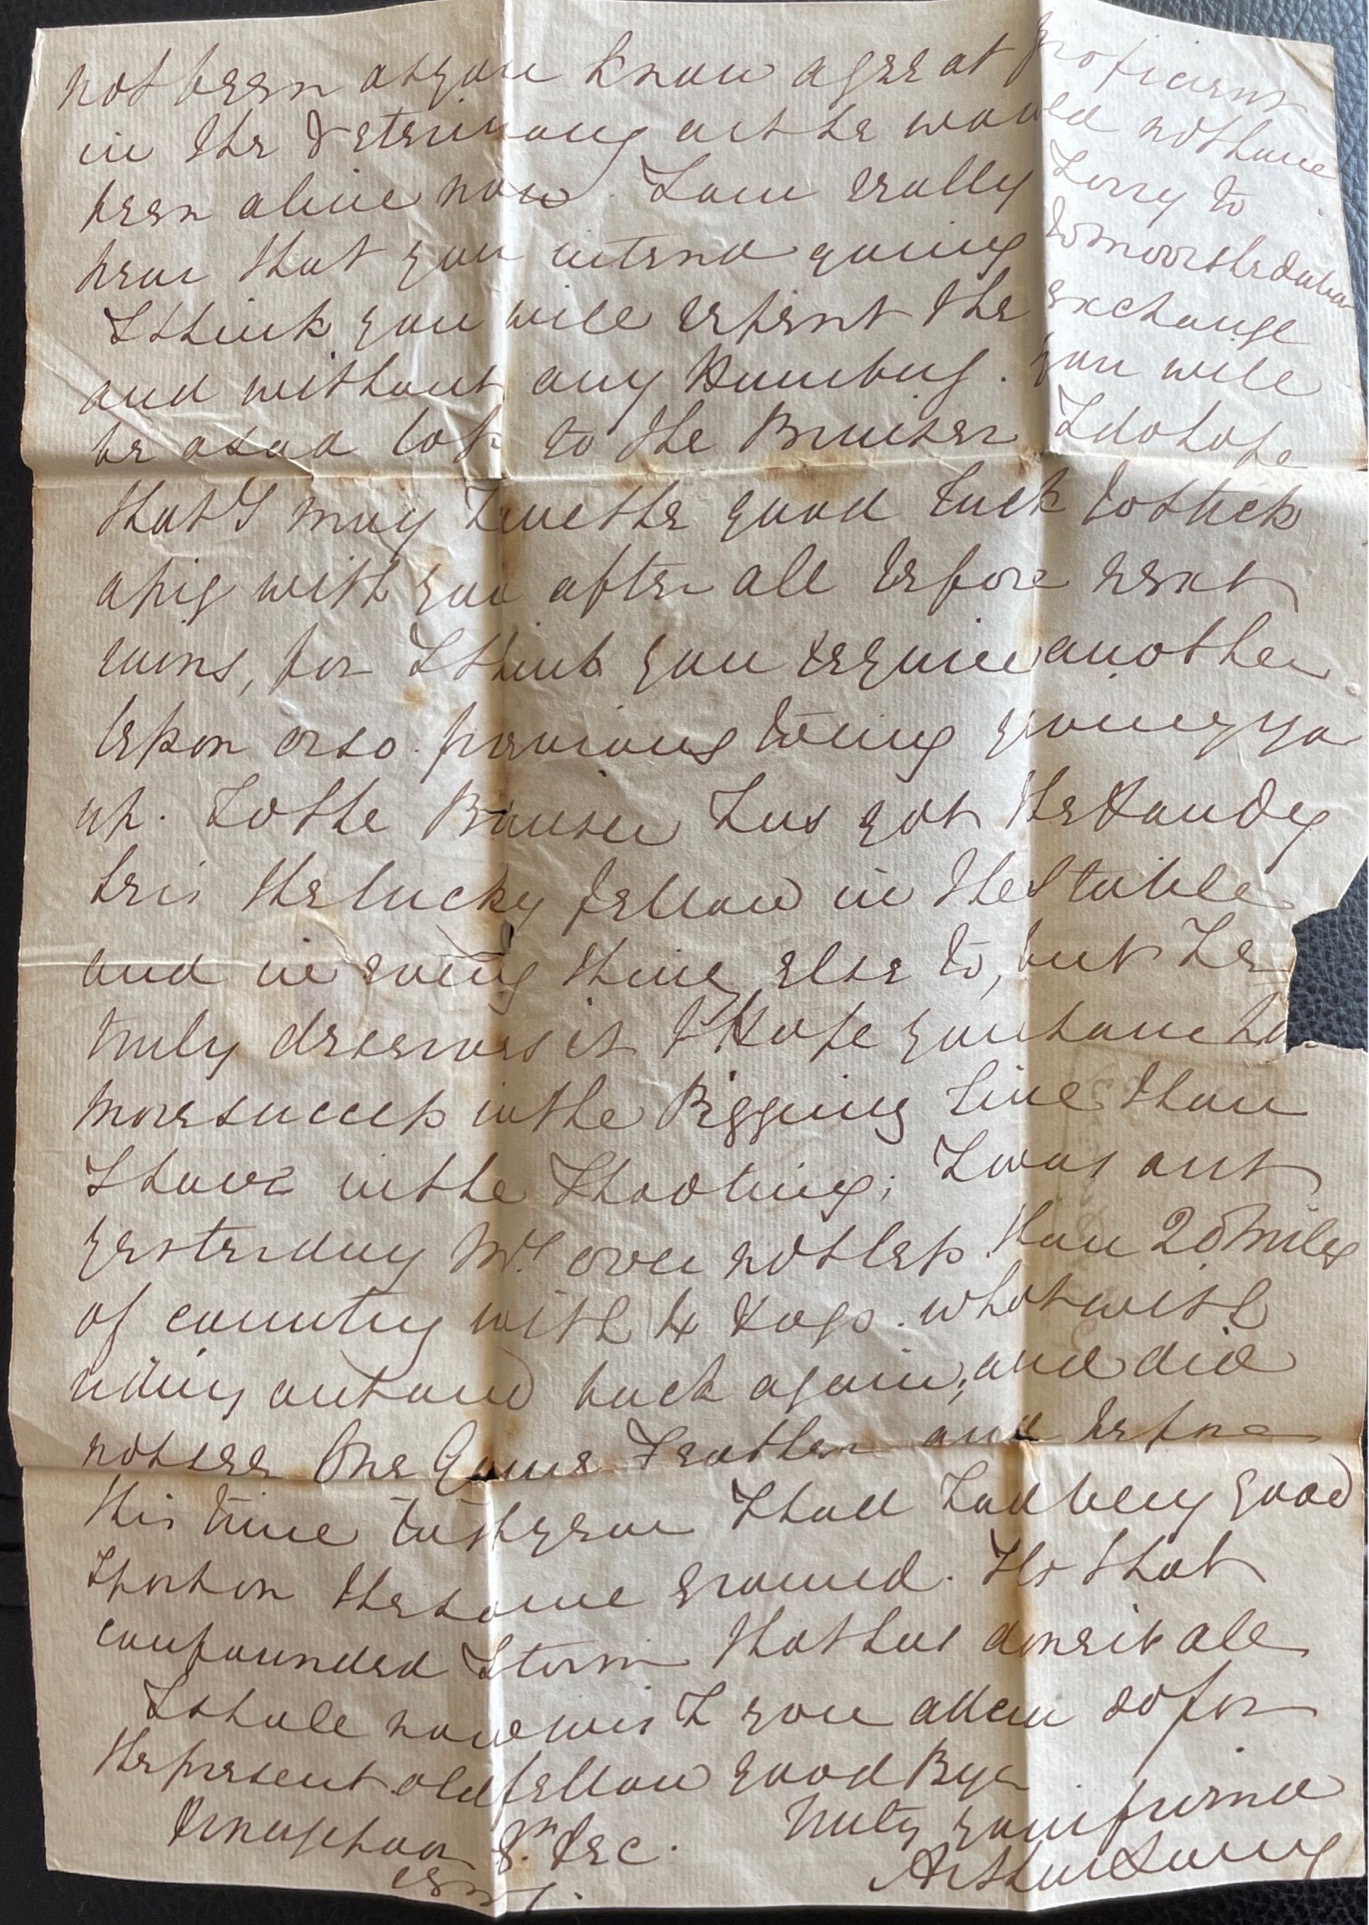 not been as you know a great proficient
in the Veterinary art he would not have
been alive now. I am really sorry to
hear that you intend going to Moorshedabad
I think you will repent the exchange
and without any Humbug. you will
be a sad loss to the Bruiser I do hope
that I may have the good luck to stick
a pig with you after all before next
rains, for I think you require another
lesson or so previous to my giving you
up. So the Bruiser has got the Handy
he is the lucky fellow in the Stable
and in every thing else to, but he
truly deserves it I Hope you have had
more success in the Pigging line than
I have in the Shooting; I was out
yesterday Mg. over not less than 20 miles
of country with 4 Dogs. what with
riding out and back again, and did
not see One Game Feather and before
this time last year I had had very good
Sport on the same ground. Tis that
confounded Storm that has done it all
I shall now wish you adieu so for
the present old fellow good Bye
8th Dec. truly your friend
Arthur